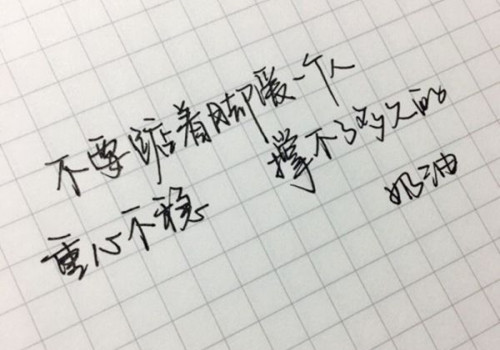 不要踮着脚爱一个人
重心不稳 撑不了多久的
奶油